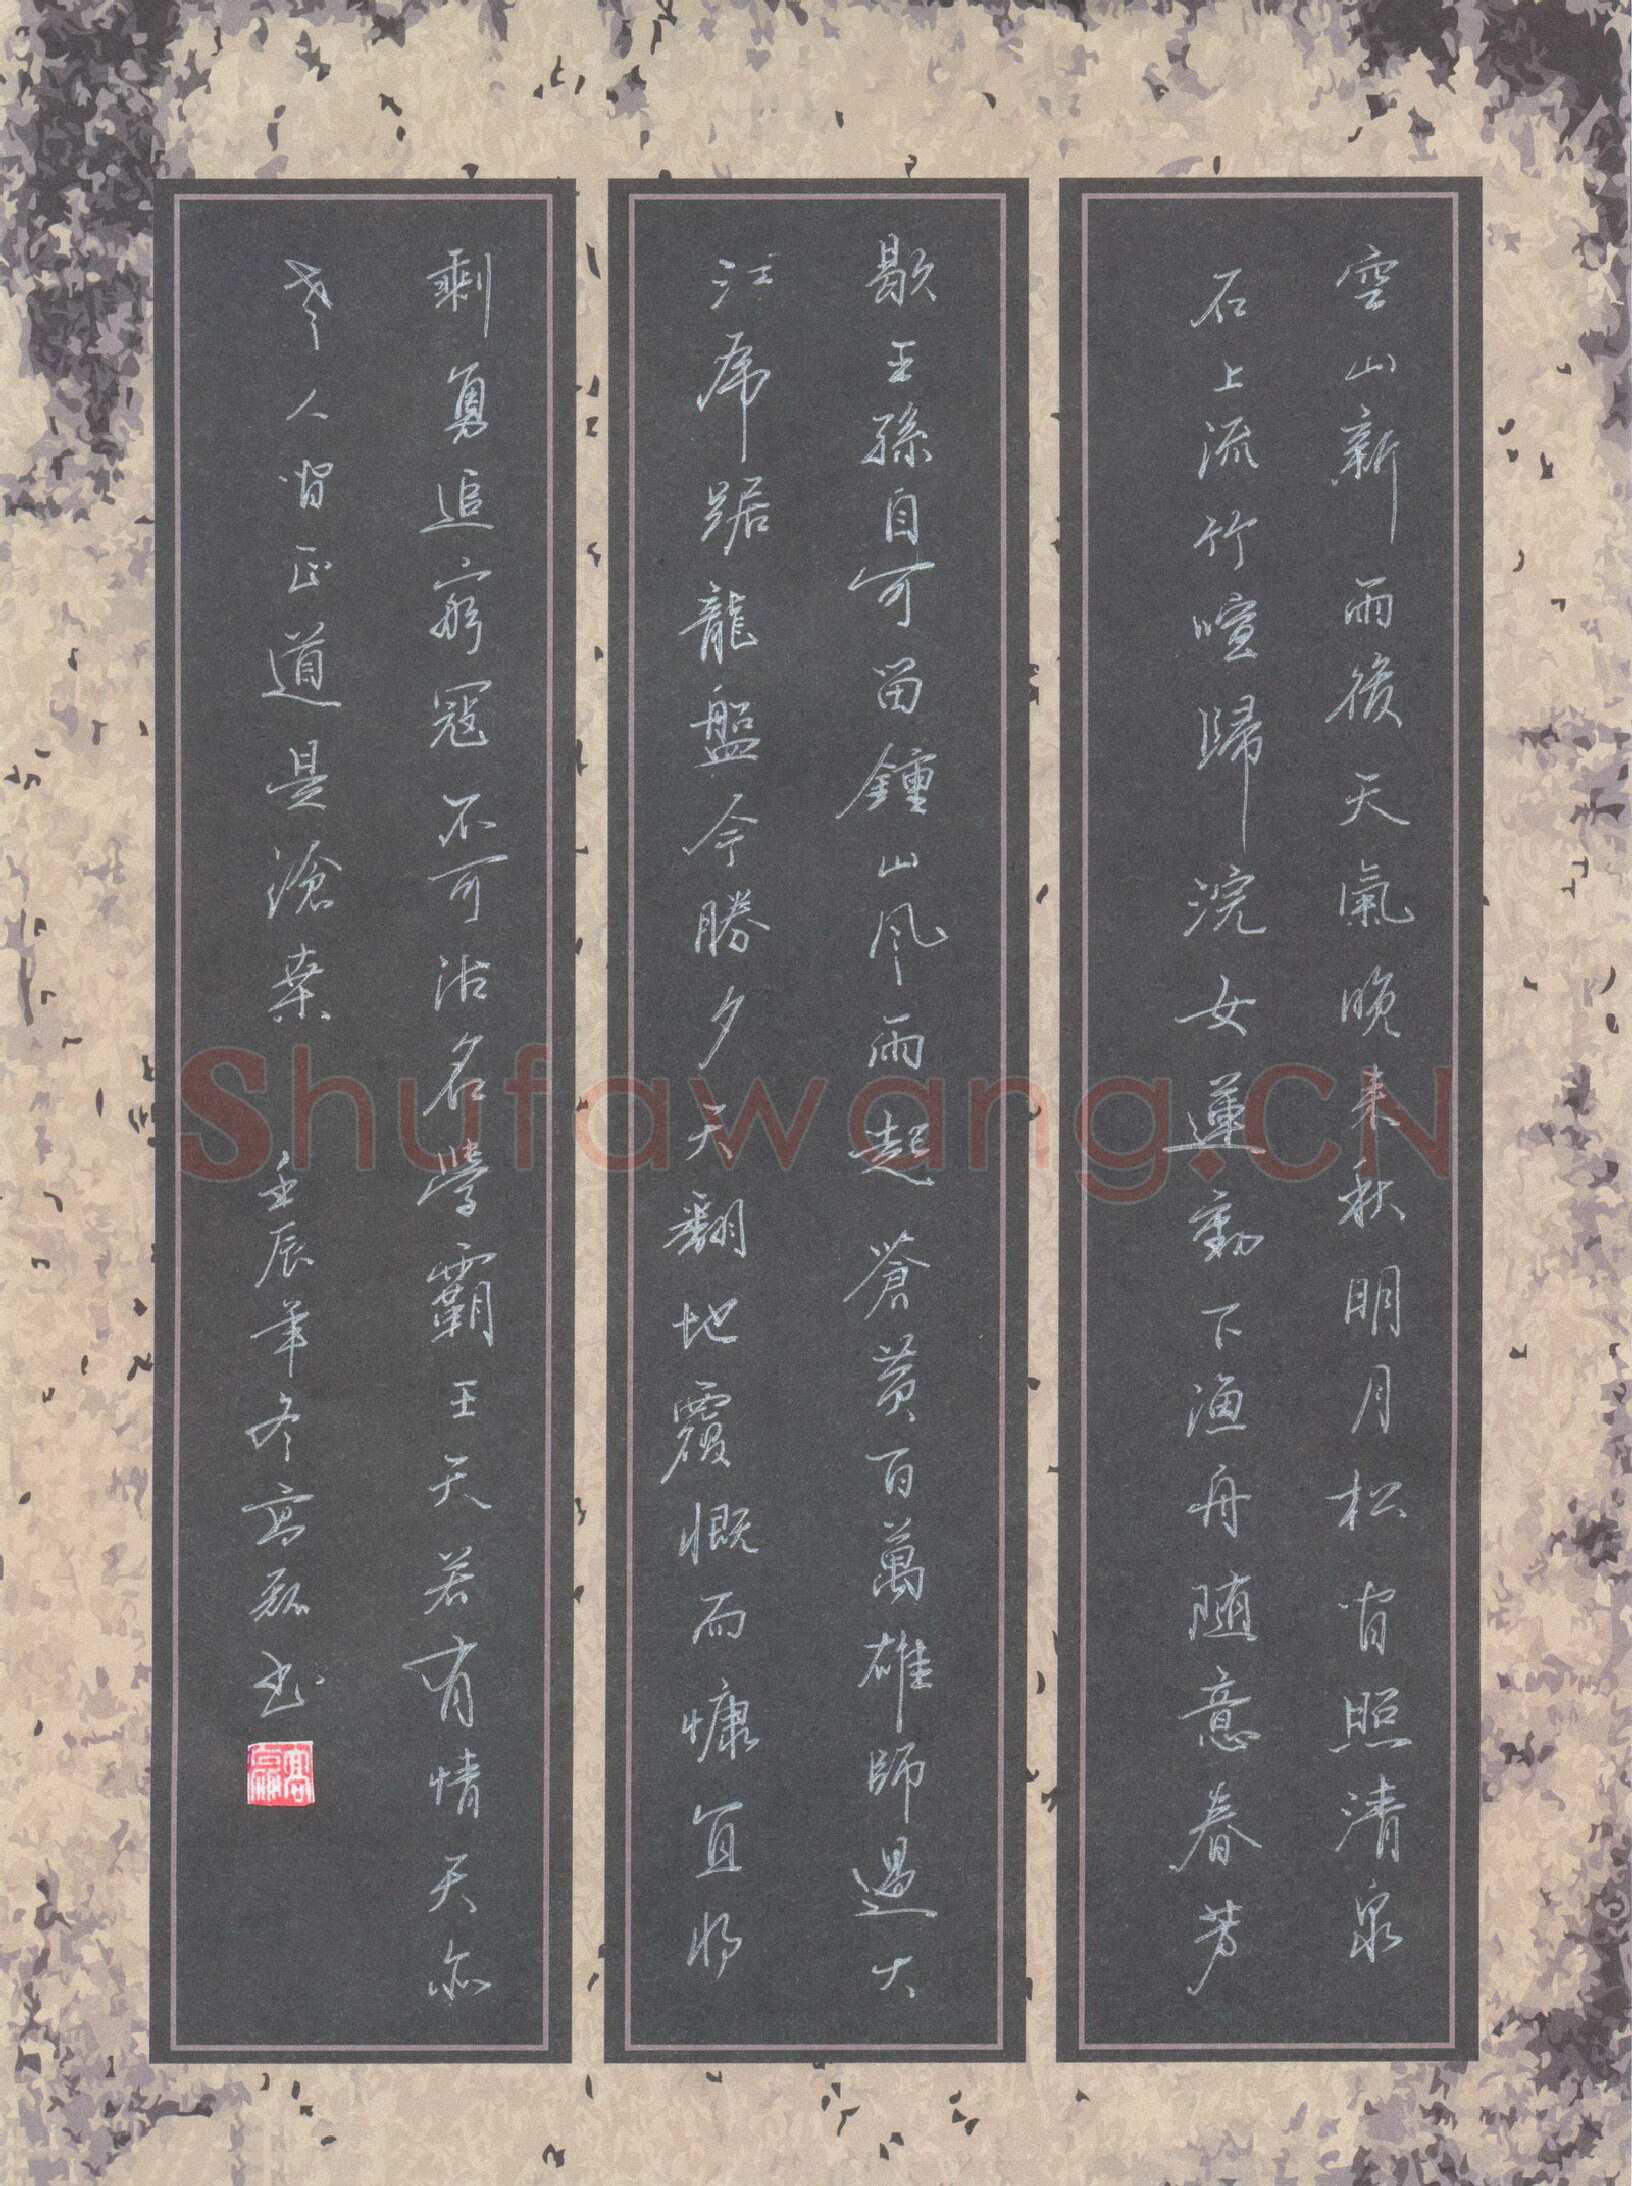 空山新雨後天氣晚来秋明月松間照清泉
石上流竹喧歸浣女蓮動下渔舟随意春芳
歇王孫自可留鍾山风雨起蒼黄百萬雄師過大
江虎踞龍盤今勝夕天翻地覆慨而慷宜将
剩勇追穷寇不可沽名學霸王天若有情天亦
老人間正道是滄桑 壬辰年冬高磊书
Shufawang.CN